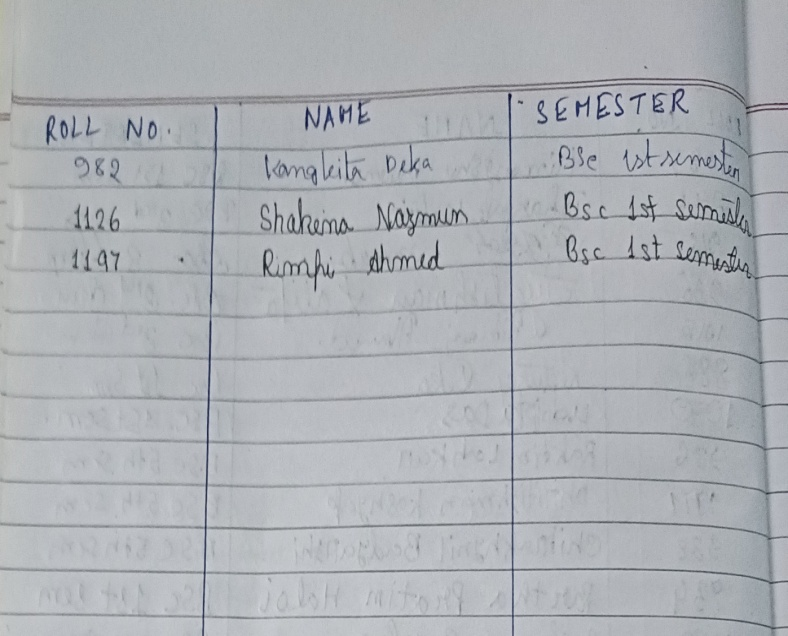 ROLL NO. NAME SEMESTER
982 Kangkita Deka BSc 1st semester
1126 Shahena Nazmun Bsc 1st semester
1197 Rimpi Ahmed Bsc 1st semester